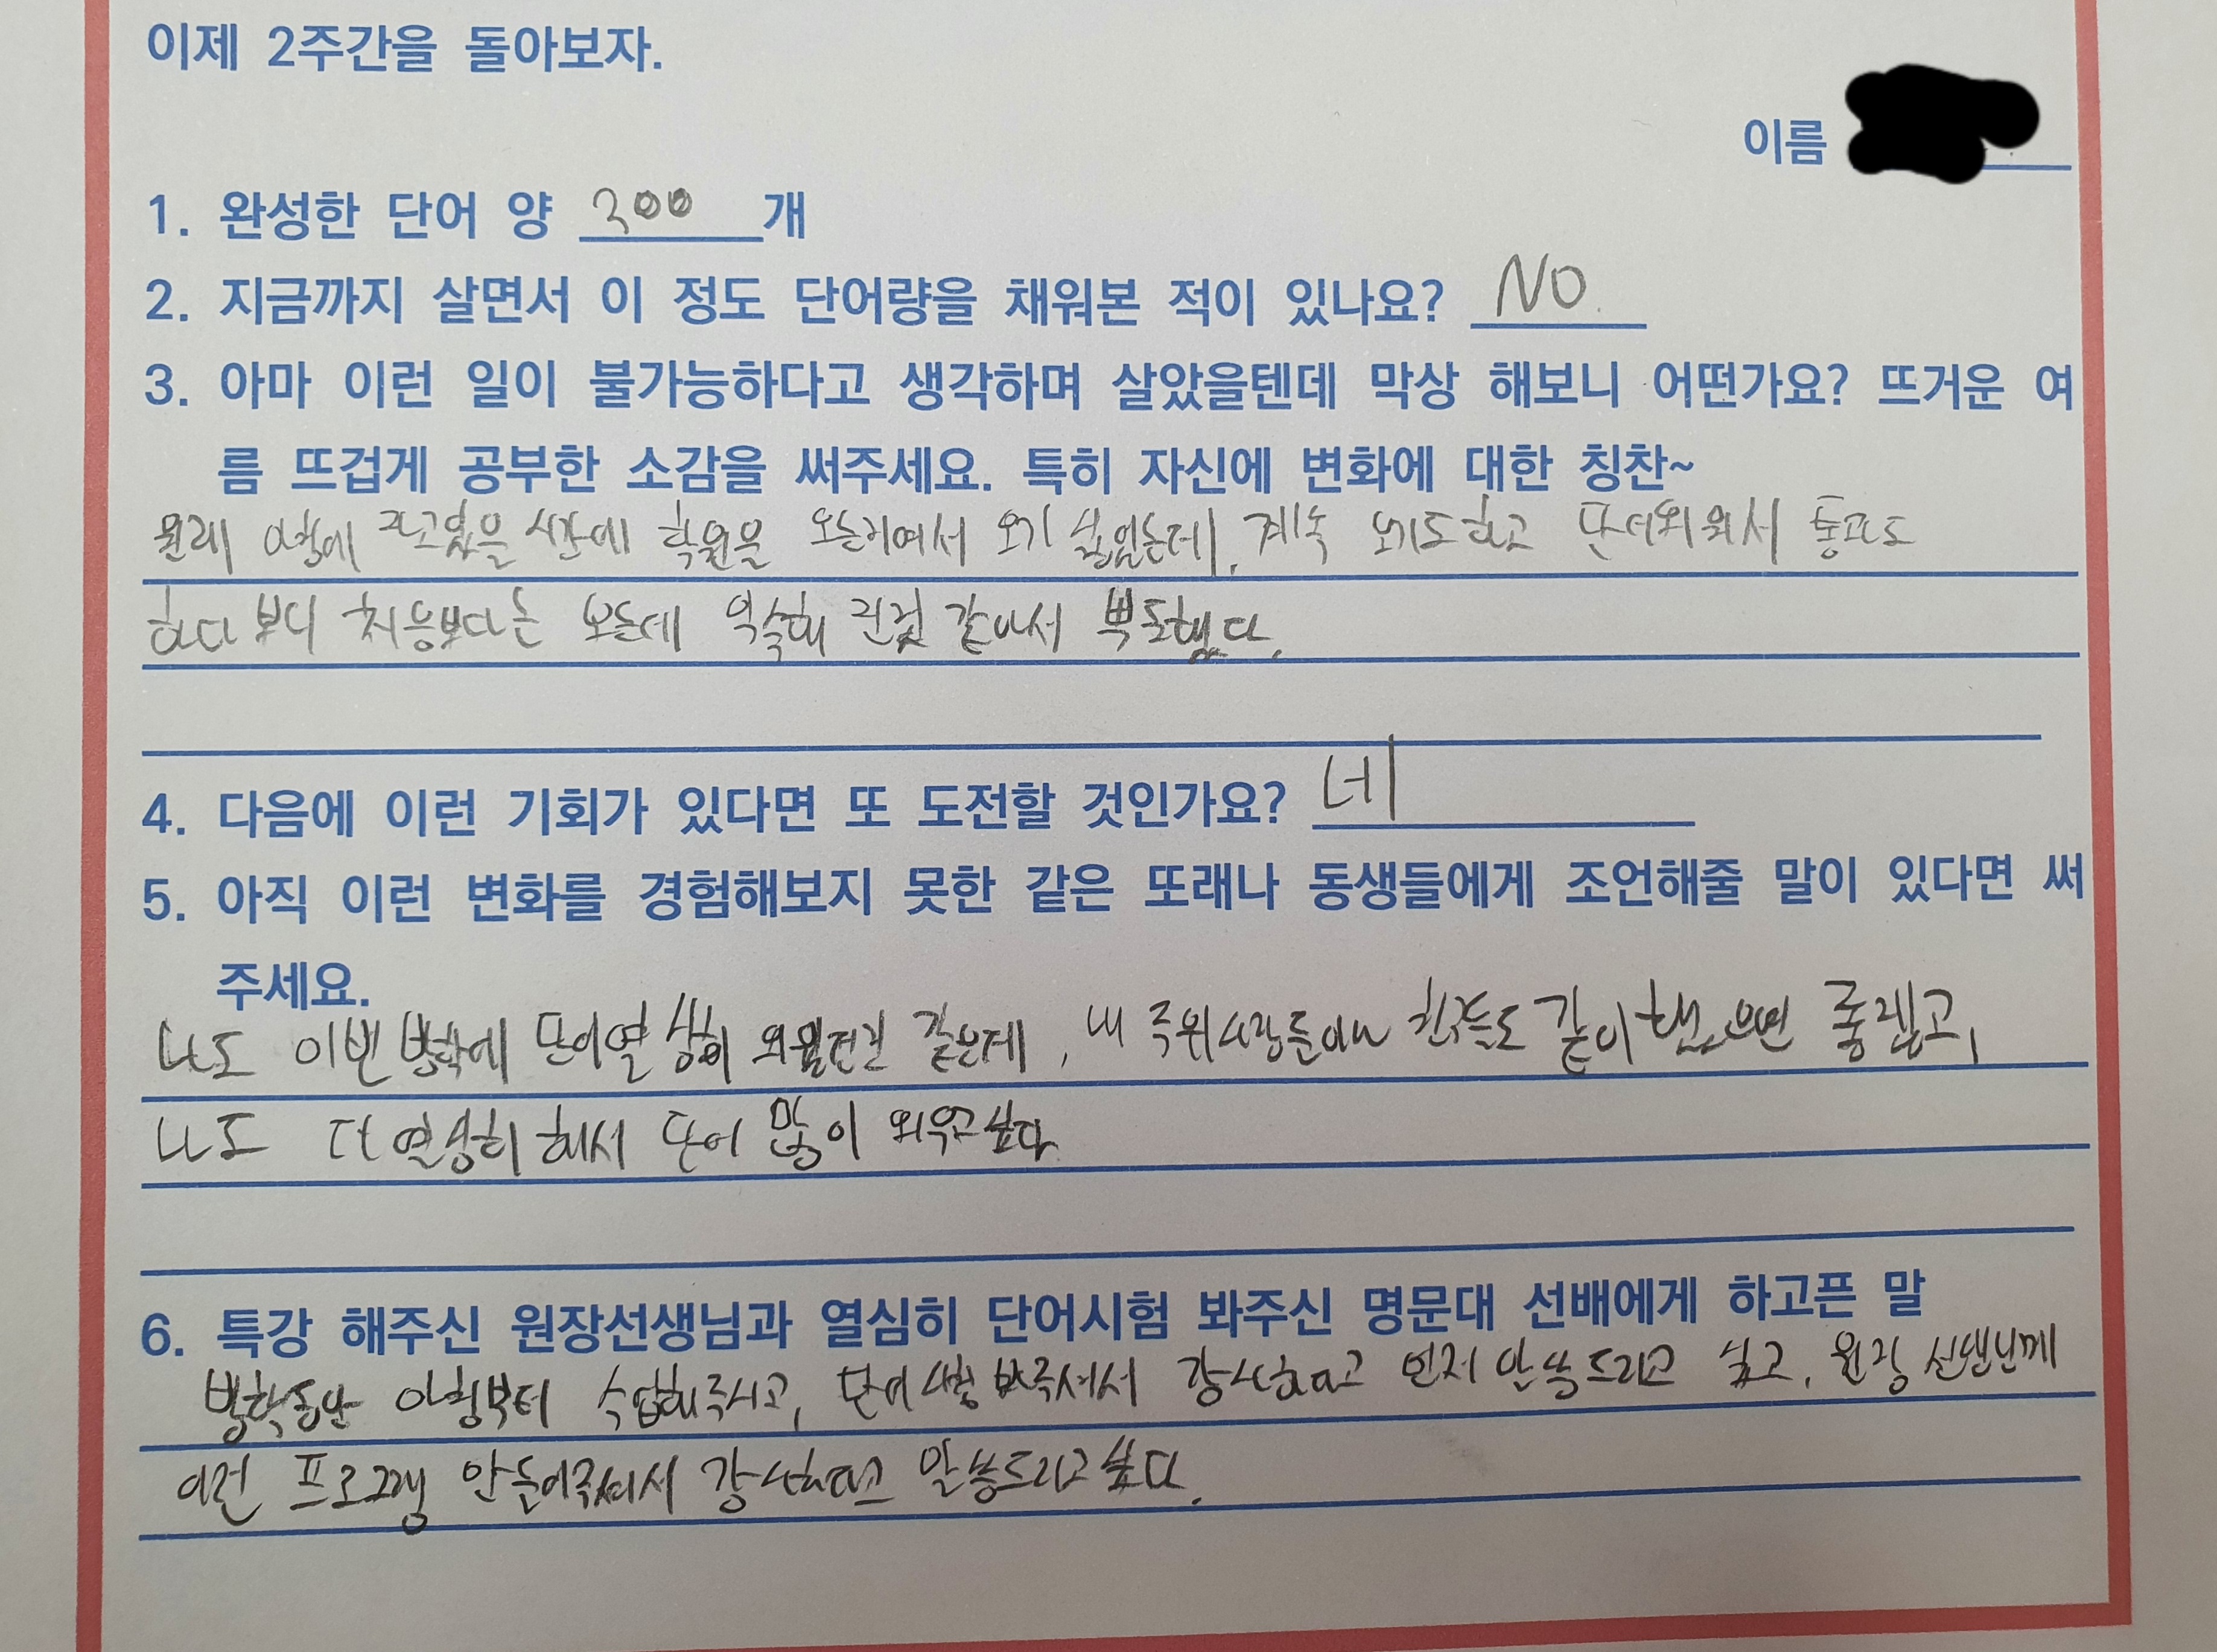 이제 2주간을 돌아보자.
이름
1. 완성한 단어 양 300 개
2. 지금까지 살면서 이 정도 단어량을 채워본 적이 있나요? NO.
3. 아마 이런 일이 불가능하다고 생각하며 살았을텐데 막상 해보니 어떤가요? 뜨거운 여
름 뜨겁게 공부한 소감을 써주세요. 특히 자신에 변화에 대한 칭찬~
원래 아침에 자고있을 시간에 학원을 오는거여서 오기 싫었는데, 계속 오기도하고 단어외워서 통과도
하다 보니 처음보다는 오는데 익숙해 진것 같아서 뿌듯했다.
4. 다음에 이런 기회가 있다면 또 도전할 것인가요? 네
5. 아직 이런 변화를 경험해보지 못한 같은 또래나 동생들에게 조언해줄 말이 있다면 써
주세요.
나도 이번 방학에 단어열심히 외웠던것 같은데, 내 주위사람들이나 친구들도 같이했으면 좋겠고,
나도 더 열심히해서 단어 많이 외우고싶다
6. 특강 해주신 원장선생님과 열심히 단어시험 봐주신 명문대 선배에게 하고픈 말
방학동안 아침부터 수업해주시고, 단어시험 봐주셔서 감사하다고 먼저 말씀드리고 싶고, 원장 선생님께
이런 프로그램 만들어주셔서 감사하다고 말씀드리고싶다.